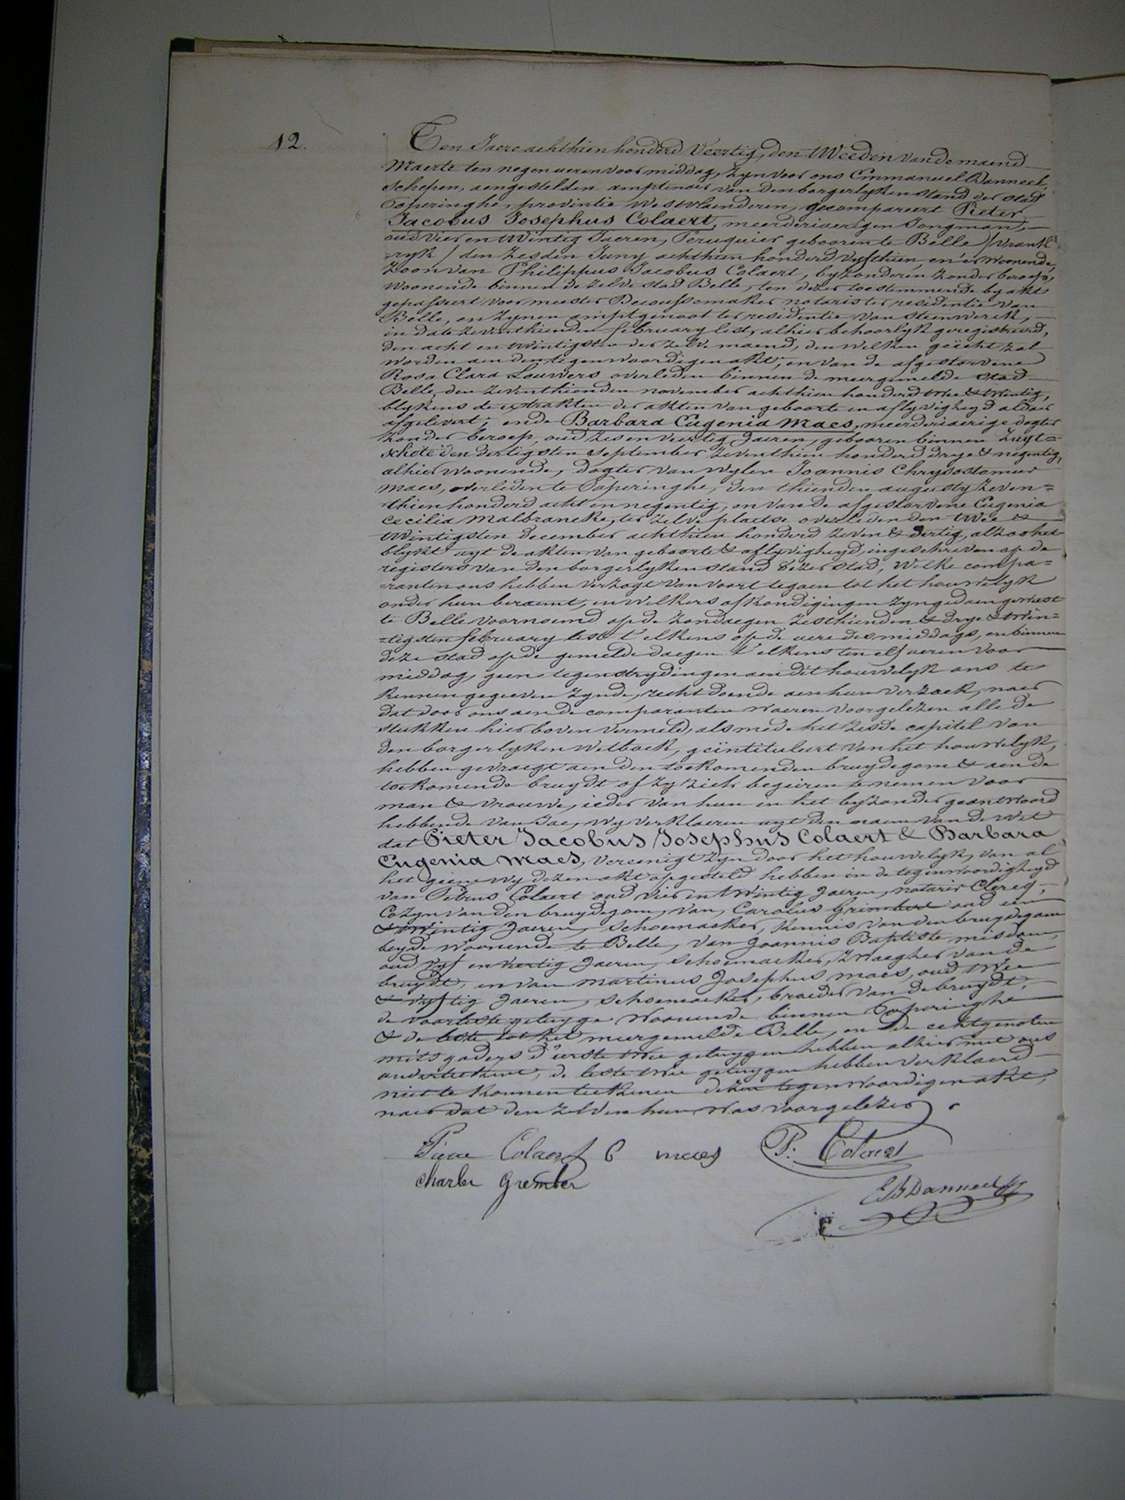 12.
Ten Jaere achthien honderd Veertig, den tWeeden van de maend
Maerte ten negen ueren voor middag, Zyn voor ons Emmanuel Danneel,
Schepen, aengestelden amptenaer van den borgerlyken stand der stad
Poperinghe, provintie Westvlaenderen, gecompareert Pieter
Jacobus Josephus Colaert, meerderjaerigen Jongman,
oud Vier en tWintig Jaeren, Peruquier gebooren te Belle (Vrank-
ryk) den Zesden Juny achthien honderd Vyfthien en er Woonende,
Zoon van Philippus Jacobus Colaert, byzonderen Zonder beroep,
Woonende binnen de Zelve stad Belle, ten dezer toestemmende by akt
gepasseert voor meester Decoussemaker notaris ter residentie van
Belle, en Zynen amptgenoot ter residentie van Steenwerck,
in date Zeventhienden february lest, alhier behoorlyk geregistreerd,
den acht en tWintigsten der Zelve maend, den Welken gehecht zal
Worden aen den tegenwoordigen akt; en van de afgestorvene
Rosa Clara Louwers overleden binnen de meergemelde stad
Belle, den Zeventhienden november achthien honderd twee & tWintig,
blykens de extrakten der akten van geboorte en aflyvigheyd aldaer
afgelevert; ende Barbara Eugenia Maes, meerderjaerige dogter
Zonder beroep, oud Zes en Veertig Jaeren, gebooren binnen Zuyt-
schote den dertigsten September Zeventhien honderd drye & negentig,
alhier Woonende, Dogter van Wylen Joannis Chrysostomus
Maes, overleden te Poperinghe, den thienden augusty Zeven-
thien honderd acht en negentig, en van de afgestorvene Eugenia
Cecilia Malbrancke, ter Zelve plaetse overleden den twee &
tWintigsten December achthien honderd Zeven & dertig, alzoo het
blykt uyt de akten van geboorte & aflyvigheyd, ingeschreven op de
registers van den borgerlyken stand dezer stad; Welke compa-
ranten ons hebben verzogt van voort te gaen tot het houwelyk
onder hun beraemt, en Welkers afkondigingen Zyn gedaen geweest
te Belle voornoemd op de Zondaegen Zesthienden & drye & tWin-
tigsten february lest t'elkens op de uere des middags, en binnen
deze stad op de gemelde daegen t'elkens ten elf ueren voor
middag, geene tegenstrydingen aen dit houwelyk ons te
kennen gegeeven Zynde, recht doende aen hun Verzoek, naer
dat door ons aen de comparanten Waeren voorgelezen alle de
stukken hier boven vermeld, als mede het Zesde capitel van
den borgerlyken Wetboek, geïntituleert Van het houwelyk,
hebben gevraegt aen den toekomenden bruydegom & aen de
toekomende bruydt of Zy Zich begeiren te nemen voor
man & vrouwe, ieder van hun in het byzonder geantwoord
hebbende Van Jae, Wy verklaeren uyt den naem van de Wet
dat Pieter Jacobus Josephus Colaert & Barbara
Eugenia Maes, vereenigt Zyn door het houwelyk, van al
het geene Wy dezen akt opgesteld hebben in de tegenwoordigheyd
van Petrus Colaert oud Vier en tWintig Jaeren, notaris Clercq,
Cozyn van den bruydegom, van Carolus Grimbert oud een
& tWintig Jaeren, Schoemaeker, kennis van den bruydegom
beyde Woonende te Belle, van Joannis Baptiste
oud Vyf en Veertig Jaeren, Schoemaeker, Zwaegher van de
bruydt, en van Martinus Josephus Maes, oud twee
& Vyftig Jaeren, Schoemaeker, broeder van de bruydt,
de voorleste getuyge Woonende binnen Poperinghe
& de leste tot het meergemelde Belle, en de echtgenoten
mitsgaders d'eerste twee getuygen hebben alhier met ons
onderteekent, de leste twee getuygen hebben Verklaerd
niet te konnen teekenen dezen tegenwoordigen akt,
naer dat den Zelven hun Was voorgelezen.
Pierre Colaert B maes P. Colaert
charles Grimber
E. Danneel